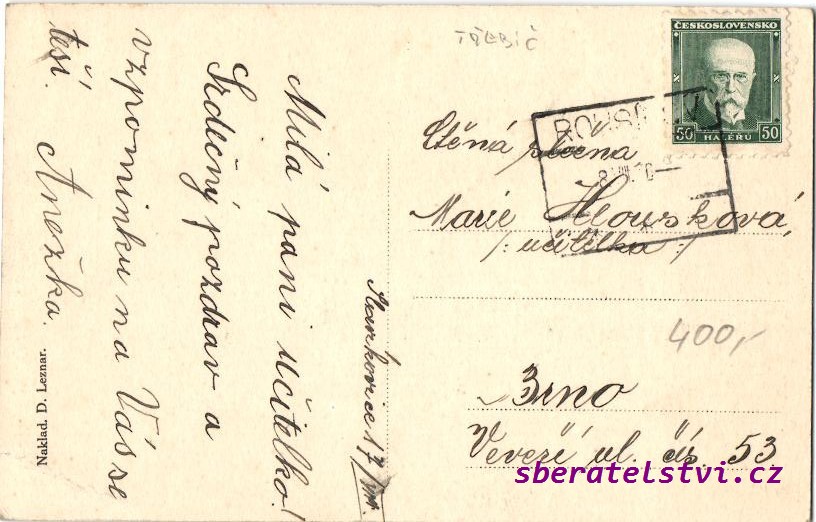 Milá paní učitelko!
Srdečný pozdrav a
vzpomínku na Vás se
těší.
Anežka.
17/VIII.
Naklad. D. Leznar.
TŘEBIČ
ČESKOSLOVENSKO
50 50
HALÉŘŮ
Ctěná slečna
Marie
/: učitelka :/
400,-
Brno
Veveří ul. čís. 53
sberatelstvi.cz